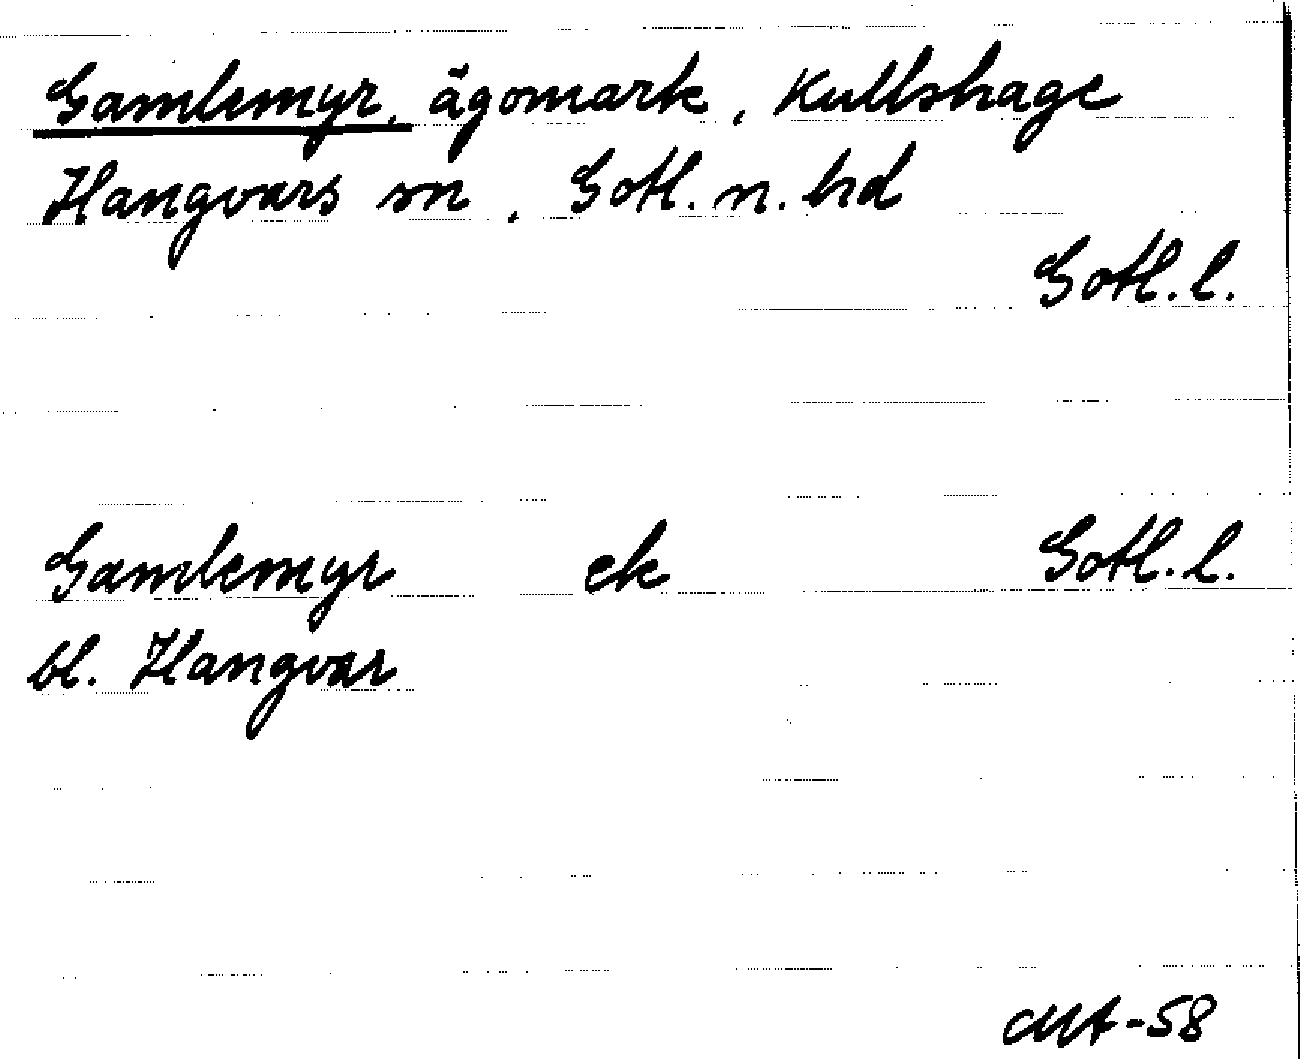 Gamlemyr, ägomark, Kullshage
Hangvars sn, Gotl. n. hd
Gotl. l.
Gamlemyr ek Gotl. l.
bl. Hangvar
MA-58